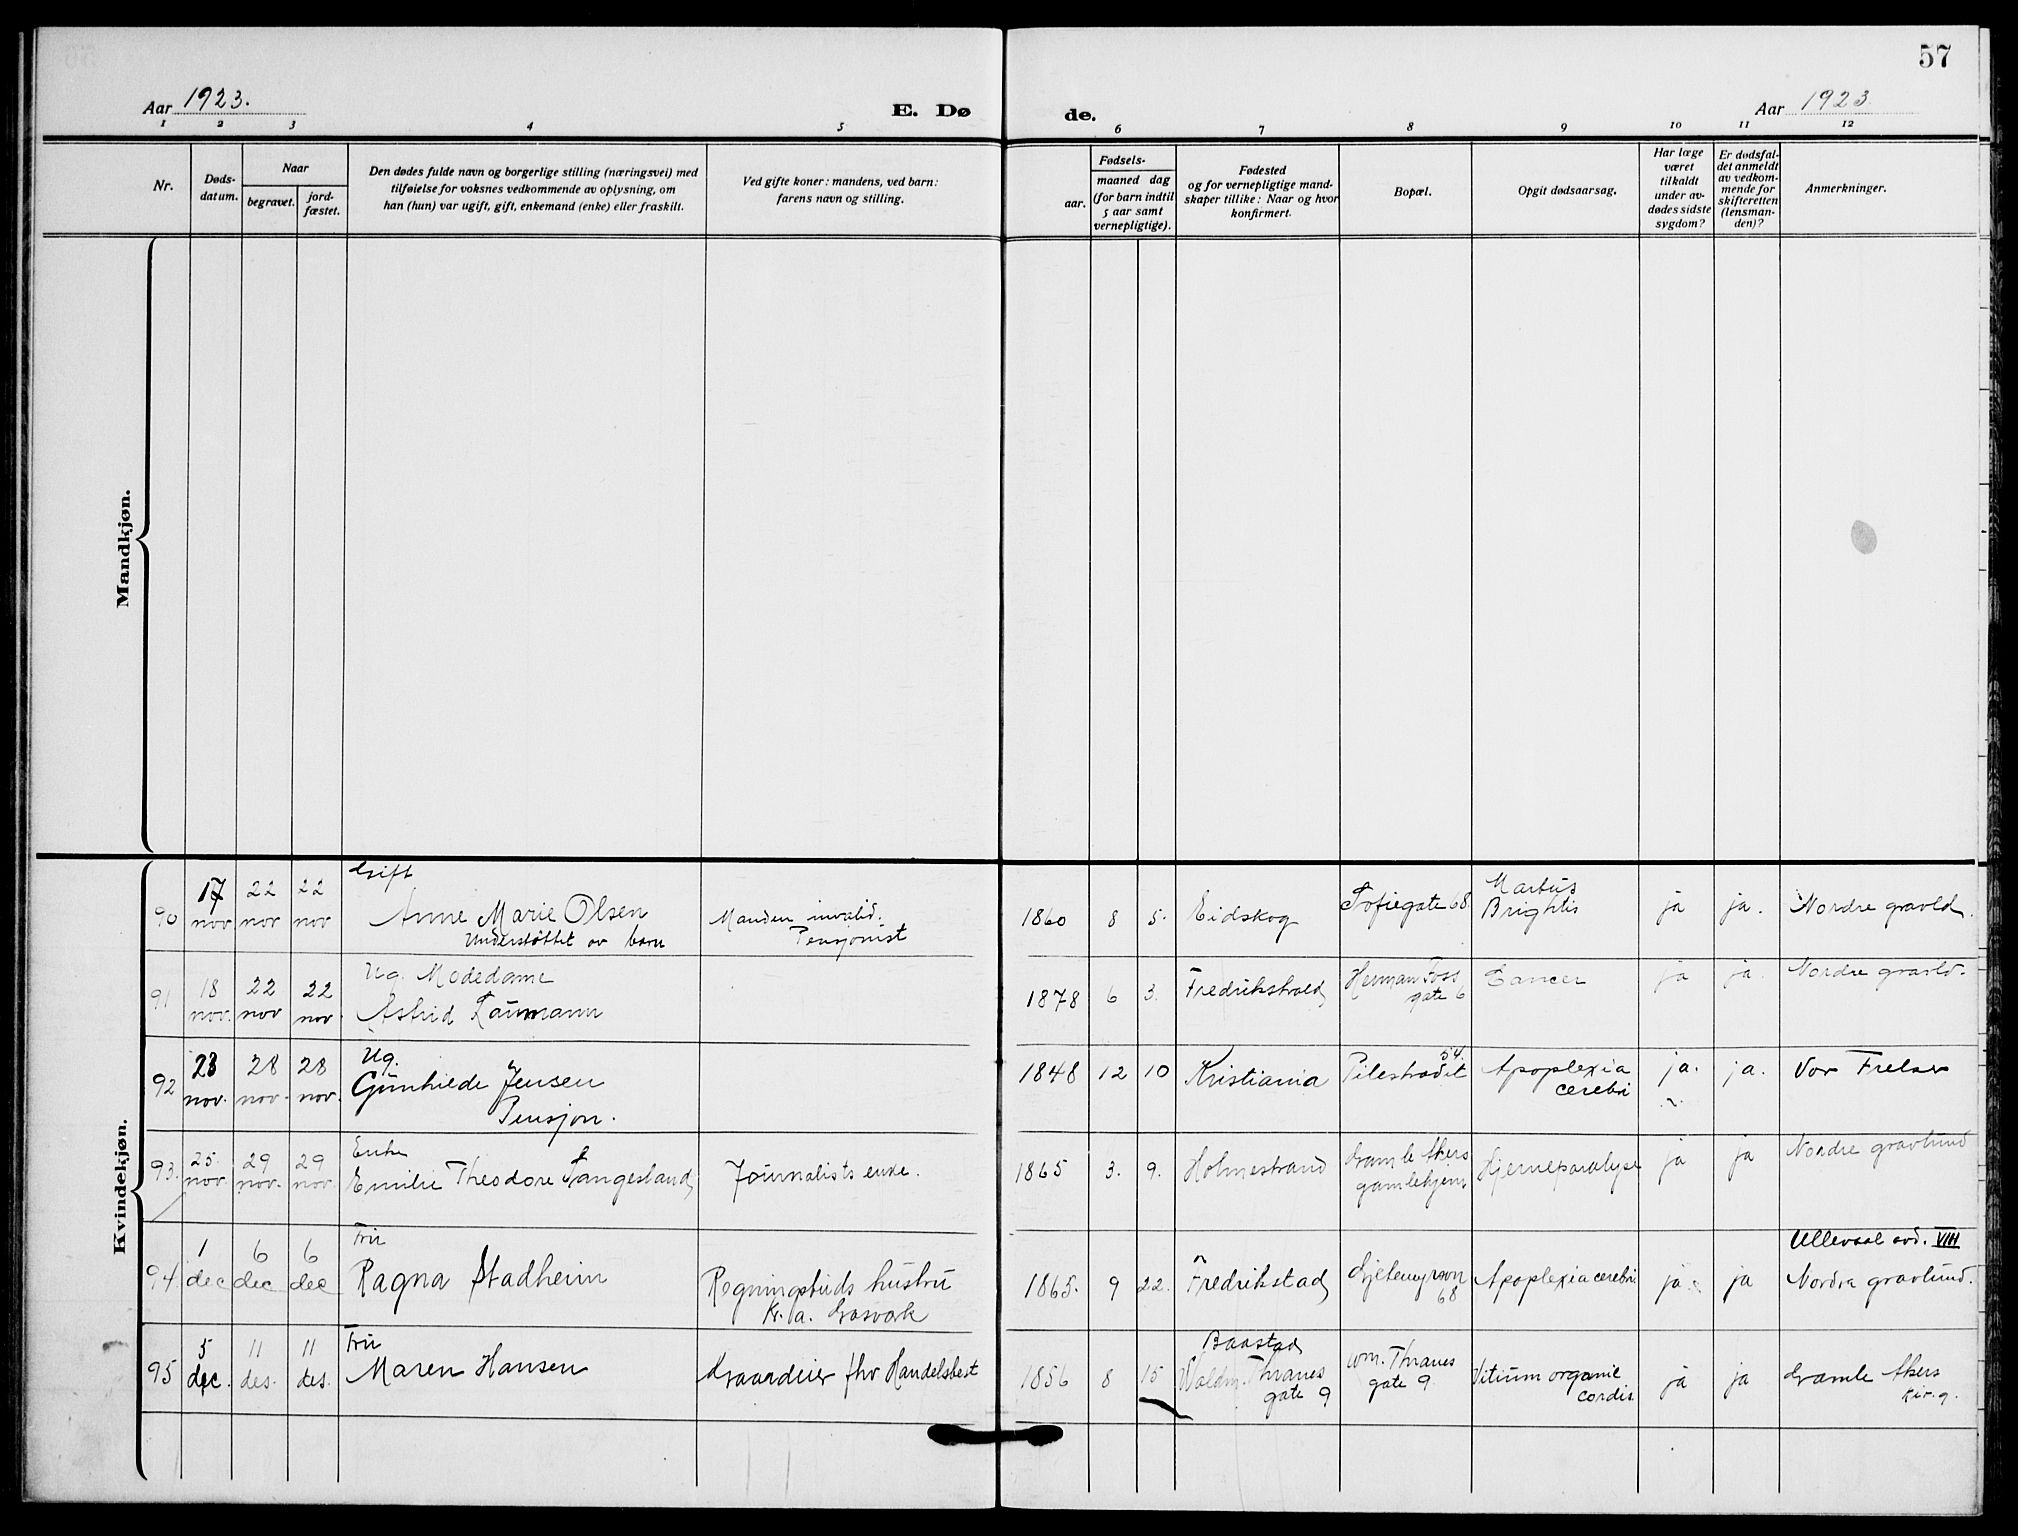 57
Aar 1923.
E. Dø
de.
Aar 1923
1 2 3 4 5 6 7 8 9 10 11 12
Nr.
Døds-
datum.
Naar
begravet.
jord-
fæstet.
Den dødes fulde navn og borgerlige stilling (næringsvei) med
tilføielse for voksnes vedkommende av oplysning, om
han (hun) var ugift, gift, enkemand (enke) eller fraskilt.
Ved gifte koner: mandens, ved barn:
farens navn og stilling.
Fødsels-
aar.
maaned dag
(for barn indtil
5 aar samt
vernepligtige).
Fødested
og for vernepligtige mand-
skaper tillike: Naar og hvor
konfirmert.
Bopæl.
Opgit dødsaarsag.
Har læge
været
tilkaldt
under av-
dødes sidste
sygdom?
Er dødsfal-
det anmeldt
av vedkom-
mende for
skifteretten
(lensman-
den)?
Anmerkninger.
Mandkjøn.
Kvindekjøn.
90
17
nov
22
nov
22
nov
Gift
Anne Marie Olsen
Understøttet av barn
Manden invalid.
Pensjonist
1860 8 5.
Eidskog
Sofiegate 68
Morbus
Brightis
ja
ja.
Nordre gravld.
91
18
nov.
22
nov
22
nov.
Ug. Modedame
Astrid
1878 6 3.
Fredrikshald
Herman Foss
gate 6
Cancer
ja
ja.
Nordre gravld.
92
23
nov.
28
nov.
28
nov.
Ug.
Gunhilde Jensen
Pensjon.
1848 12 10
Kristiania
54.
Pilestrædet
Apoplexia
cerebri
ja.
ja.
Vor Frelser
93.
25.
nov
29
nov.
29
nov.
Enke
Emilie Theodore Tangesland
Journalists enke.
1865 3. 9.
Holmestrand
Gamle Akers
gamlehjem
Hjerneparalyse
ja
ja
Nordre gravlund
94.
1
dec
6
dec
6
dec
Fru
Ragna Stadheim
Regningsbuds hustru
Kr.a. Gasverk
1865. 9 22.
Fredrikstad
68
Apoplexia cerebri
ja
ja
Ullevaal avd. VIII
Nordre gravlund.
95
5
dec.
11
des.
11
des.
Fru
Maren Hansen
Gaardeier fhv Handelsbest
1856 8 15
Baastad
Waldm. Thranes
gate 9
wm. Thranes
gate 9
Vitium organic
cordis
ja
ja
Gamle Akers
kir.g.